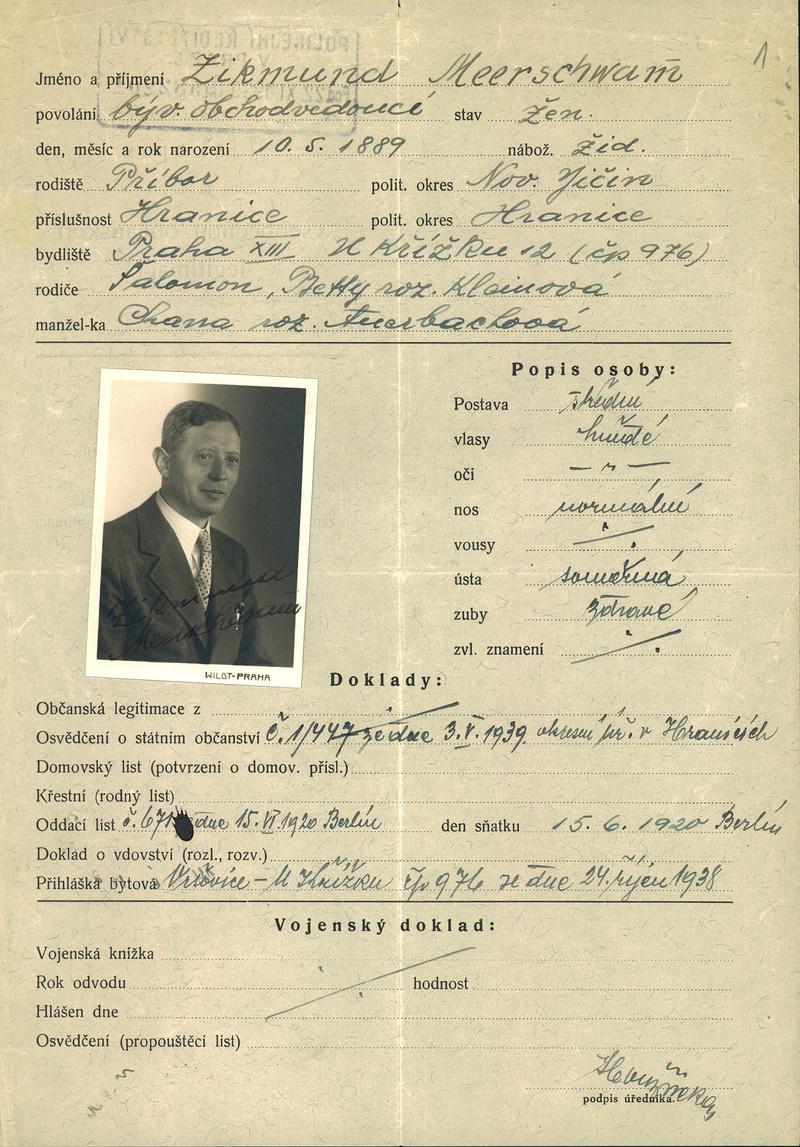 1
Jméno a příjmení Zikmund Meerschwam
povolání býv. obchodvedoucí stav žen.
den, měsíc a rok narození 10. 5. 1889 nábož. žid.
rodiště Příbor polit. okres Nov. Jičín
příslušnost Hranice polit. okres Hranice
bydliště Praha XIII U Křížku 12 (čp 976)
rodiče Salomon, Betty roz. Kleinová
manžel-ka Chana roz. Auerbachová
Popis osoby:
Postava střední
vlasy hnědé
oči — „ —
nos normální
vousy ./.
ústa souměrná
zuby zdravé
zvl. znamení ./.
Zikmund
Meerschwam
WILDT-PRAHA
Doklady:
Občanská legitimace z ./.
Osvědčení o státním občanství č. 1/447 ze dne 3.V.1939 okresní úř. v Hranicích
Domovský list (potvrzení o domov. přísl.)
Křestní (rodný list)
Oddací list č. 671 dne 15.VI.1920 Berlín den sňatku 15. 6. 1920 Berlín
Doklad o vdovství (rozl., rozv.)
Přihláška bytová Vršovice - U Křížku čp 976 ze dne 24. říjen 1938
Vojenský doklad:
Vojenská knížka
Rok odvodu ./. hodnost
Hlášen dne
Osvědčení (propouštěcí list)
podpis úředníka.